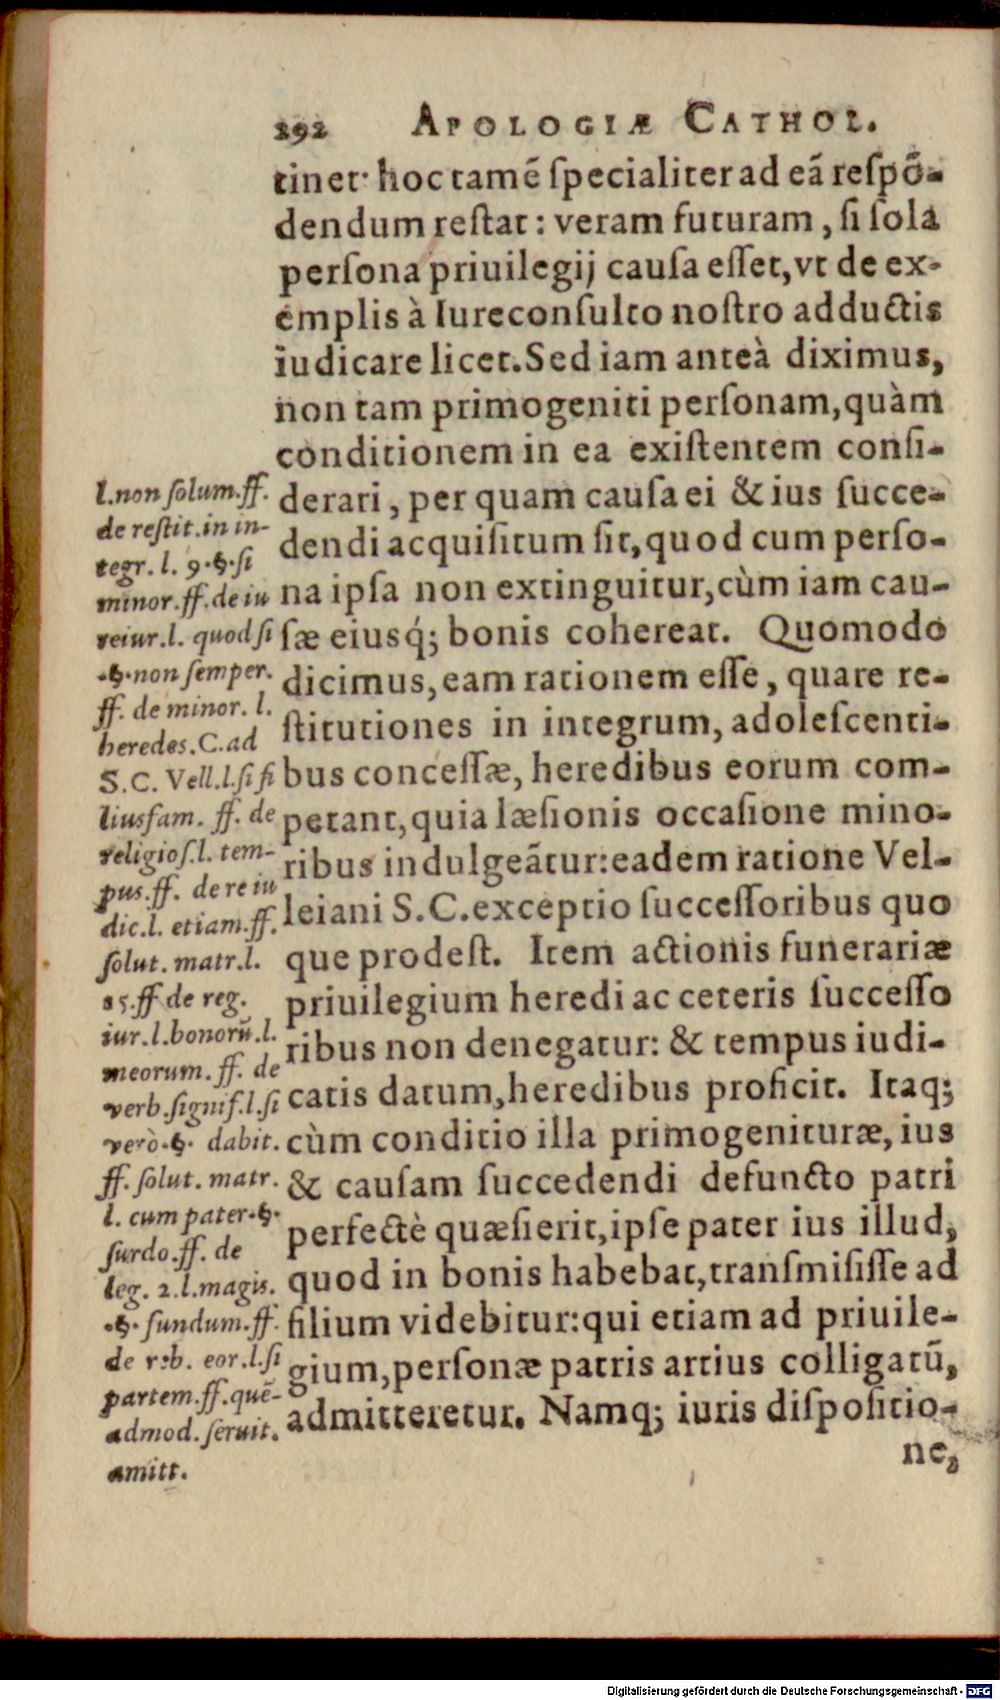 292 APOLOGIÆ CATHOL.
tinet· hoc tamẽ ſpecialiter ad eã reſpõ-
dendum reſtat: veram futuram, ſi ſola
perſona priuilegij cauſa eſſet, vt de ex-
emplis à Iureconſulto noſtro adductis
iudicare licet. Sed iam anteà diximus,
non tam primogeniti perſonam, quàm
conditionem in ea exiſtentem conſi-
derari, per quam cauſa ei & ius ſucce-
dendi acquiſitum ſit, quod cum perſo-
na ipſa non extinguitur, cùm iam cau-
ſæ eiusq́; bonis cohereat. Quomodo
dicimus, eam rationem eſſe, quare re-
ſtitutiones in integrum, adoleſcenti-
bus conceſſæ, heredibus eorum com-
petant, quia læſionis occaſione mino-
ribus indulgeãtur: eadem ratione Vel-
leiani S.C. exceptio ſucceſſoribus quo
que prodeſt. Item actionis funerariæ
priuilegium heredi ac ceteris ſucceſſo
ribus non denegatur: & tempus iudi-
catis datum, heredibus proficit. Itaq;
cùm conditio illa primogenituræ, ius
& cauſam ſuccedendi defuncto patri
perfectè quæſierit, ipſe pater ius illud,
quod in bonis habebat, tranſmiſiſſe ad
filium videbitur: qui etiam ad priuile-
gium, perſonæ patris artius colligatũ,
admitteretur. Namq; iuris diſpoſitio-
ne,
l. non ſolum. ff.
de reſtit. in in-
tegr. l. 9. §. ſi
minor. ff. de iu
reiur. l. quod ſi
.§. non ſemper.
ff. de minor. l.
heredes. C. ad
S.C. Vell. l. ſi fi
liusfam. ff. de
religioſ. l. tem-
pus. ff. de re iu
dic. l. etiam. ff.
ſolut. matr. l.
85. ff de reg.
iur. l. bonorũ. l.
meorum. ff. de
verb. ſignif. l. ſi
verò. §. dabit.
ff. ſolut. matr.
l. cum pater. §.
ſurdo. ff. de
leg. 2. l. magis.
.§. fundum. ff.
de reb. eor. l. ſi
partem. ff. quẽ-
admod. ſeruit.
amitt.
Digitalisierung gefördert durch die Deutsche Forschungsgemeinschaft - DFG